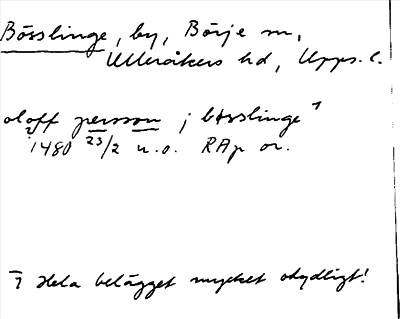 Bösslinge, by, Börje sn,
Ulleråkers hd, Upps. l.
oloff persson j bösslinge ¹
1480 23/2 u.o. RAp or.
¹ Hela belägget mycket otydligt!